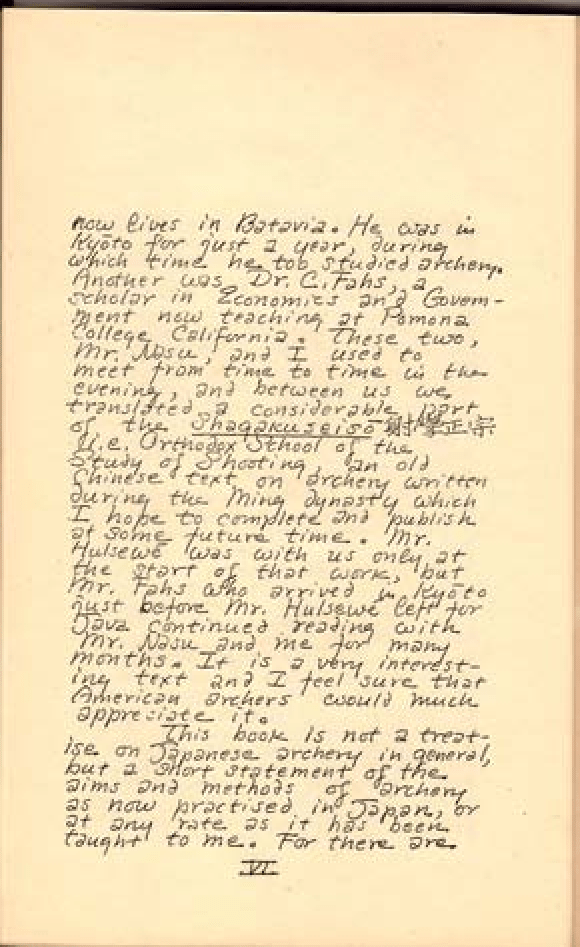 now lives in Batavia. He was in
Kyōto for just a year, during
which time he too studied archery.
Another was Dr. C. Fahs, a
scholar in Economics and Govern-
ment now teaching at Pomona
College California. These two,
Mr. Nasu, and I used to
meet from time to time in the
evening, and between us we
translated a considerable part
of the Shagakuseisō 射學正宗
(i.e. Orthodox School of the
Study of Shooting, an old
Chinese text on archery written
during the Ming dynasty which
I hope to complete and publish
at some future time. Mr.
Hulsewé was with us only at
the start of that work, but
Mr. Fahs who arrived in Kyōto
just before Mr. Hulsewé left for
Java continued reading with
Mr. Nasu and me for many
months. It is a very interest-
ing text and I feel sure that
American archers would much
appreciate it.
This book is not a treat-
ise on Japanese archery in general,
but a short statement of the
aims and methods of archery
as now practised in Japan, or
at any rate as it has been
taught to me. For there are
VI